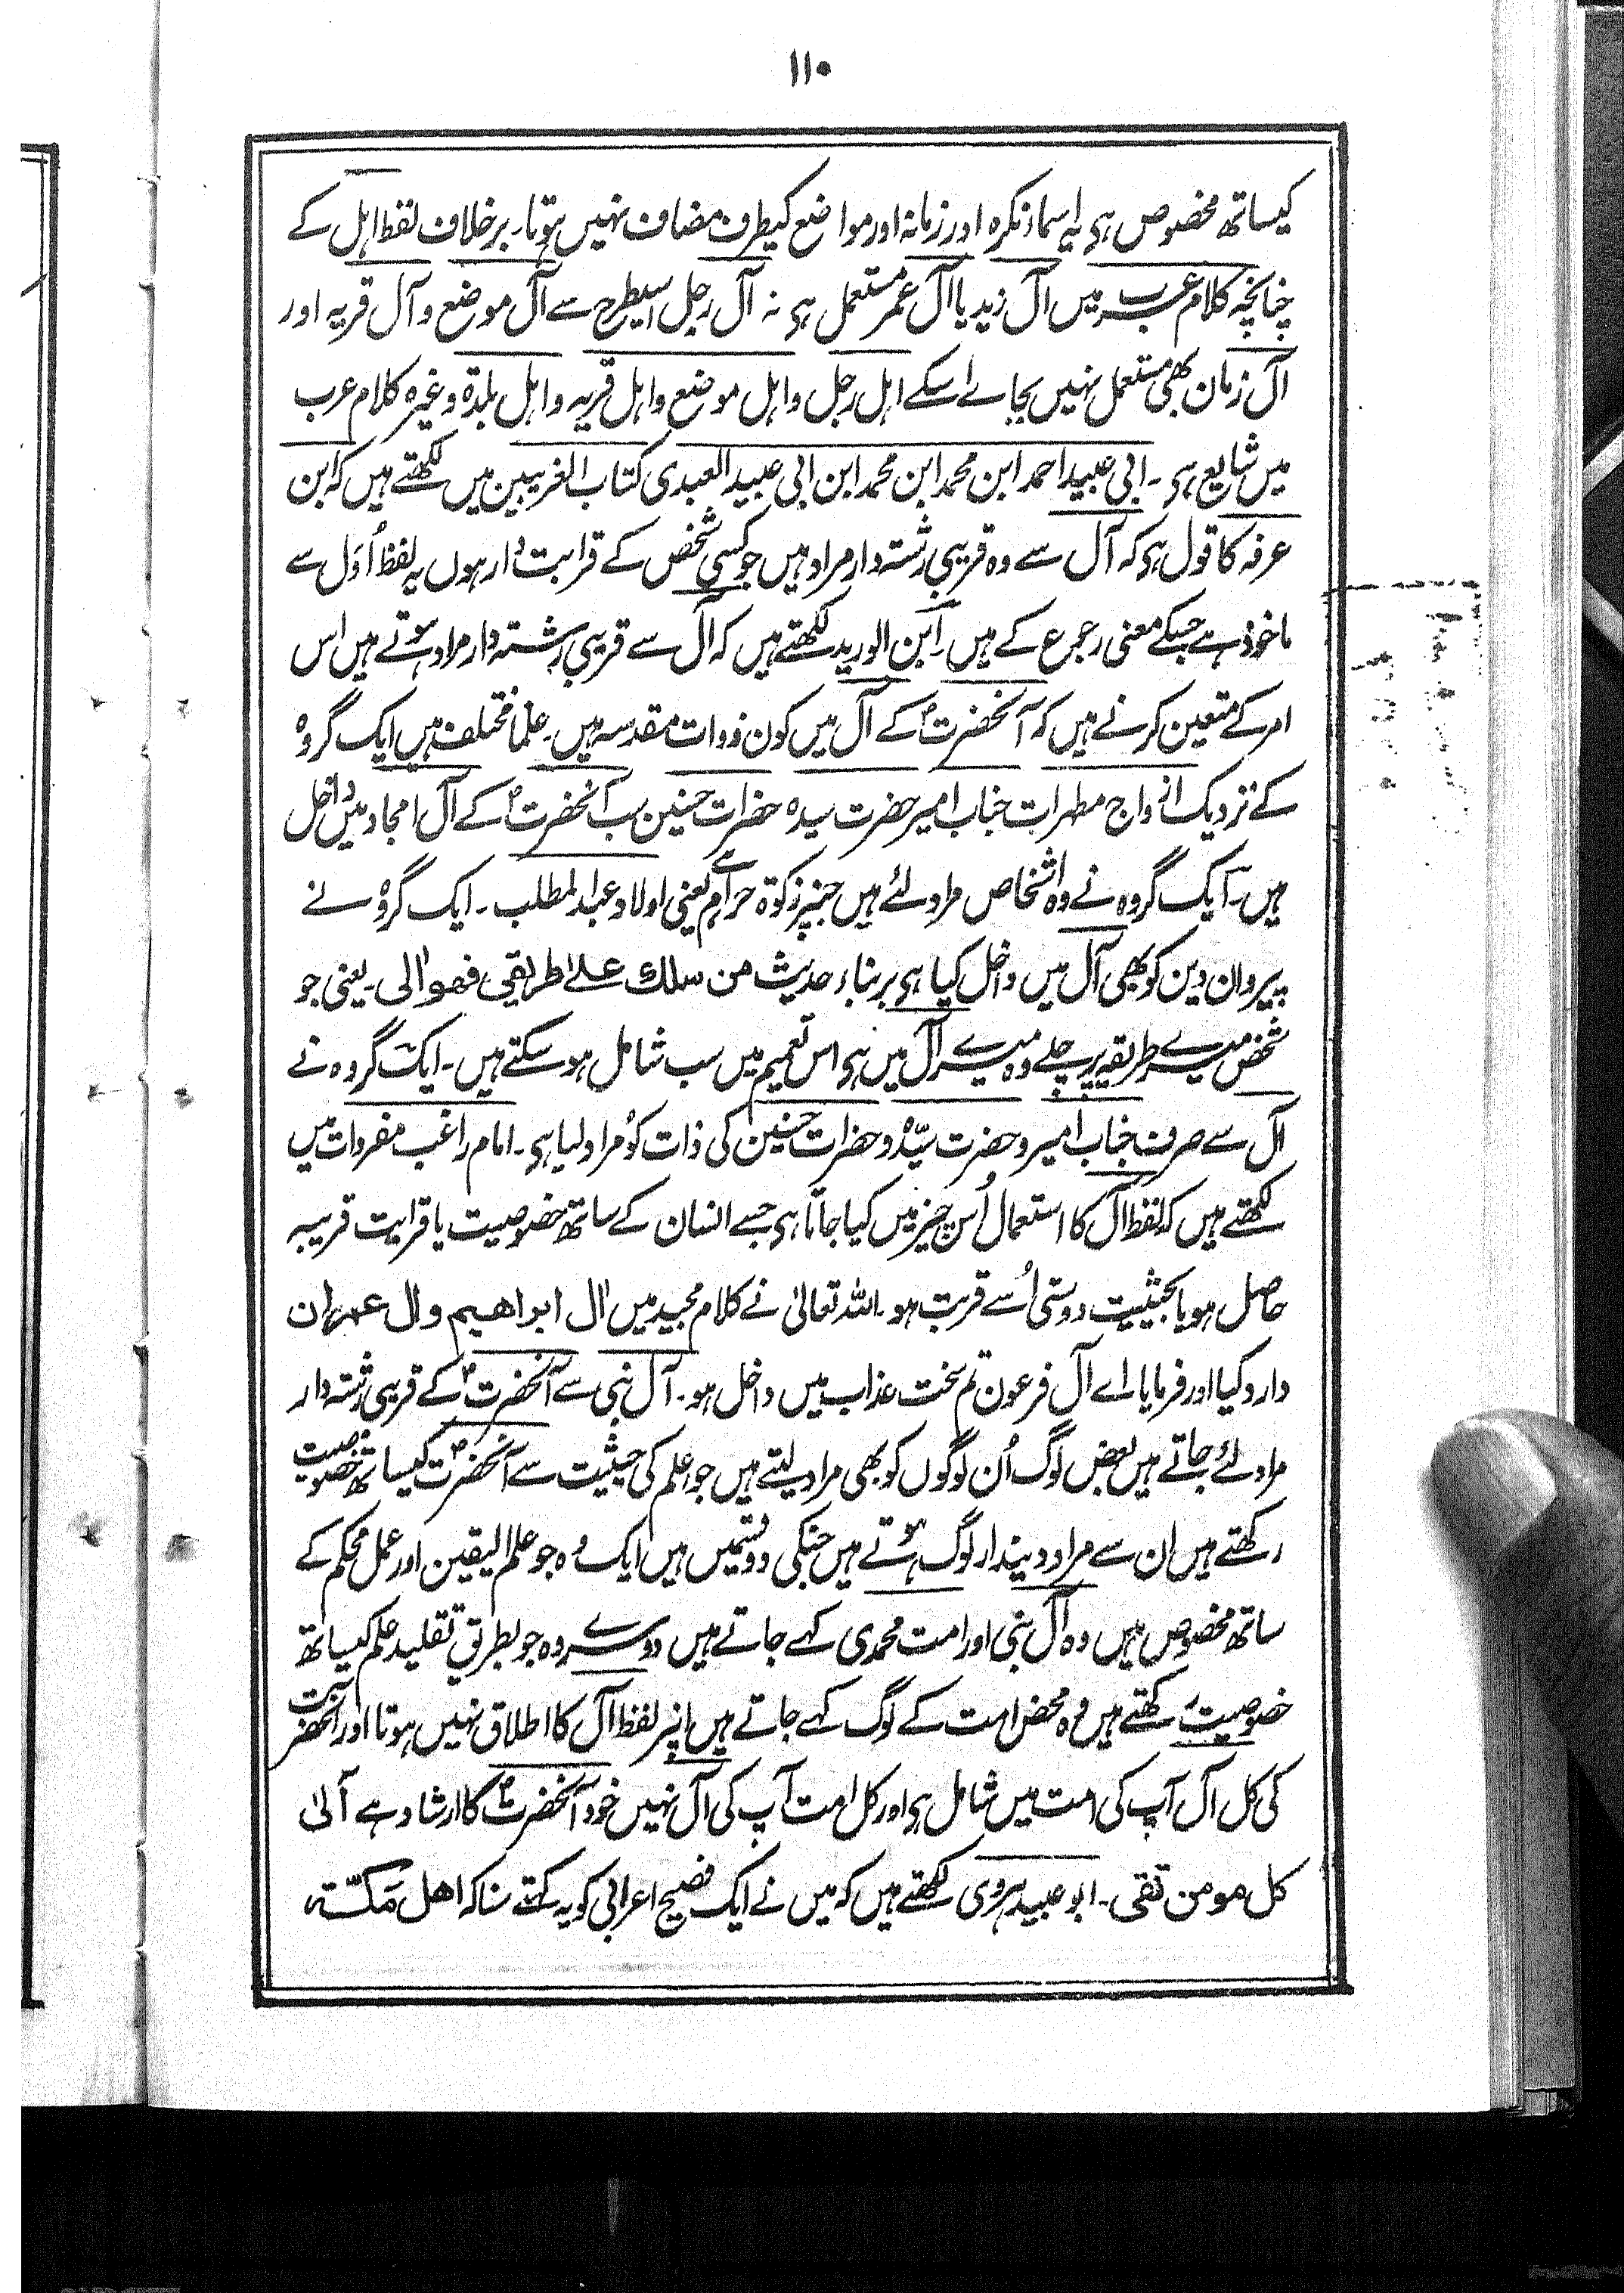 ۱۱۰
کیساتھ مخصوص ہی یہ اسماء نکرہ اور زمانہ اور مواضع کیطرف مضاف نہیں ہوتا۔ برخلاف لفظ اہل کے
چنانچہ کلام عرب میں آل زید یا آل عمر مستعمل ہی نہ آل رجل اسیطرح سے آل موضع و آل قریہ اور
آل زمان بھی مستعمل نہیں بجاے اسکے اہل رجل و اہل موضع و اہل قریہ و اہل بلدۃ وغیرہ کلام عرب
میں شایع ہی۔ ابی عبید احمد ابن محمد ابن محمد ابن ابی عبید العبدی کتاب الغریبین میں لکھتے ہیں کہ ابن
عرفہ کا قول ہی کہ آل سے وہ قریبی رشتہ دار مراد ہیں جو کسی شخص کے قرابت دار ہوں یہ لفظ اُوَل سے
ماخوذ ہے جسکے معنی رجوع کے ہیں۔ ابن الورید لکھتے ہیں کہ آل سے قریبی رشتہ دار مراد ہوتے ہیں اس
امر کے متعین کرنے میں کہ آنحضرتؐ کے آل میں کون ذوات مقدسہ ہیں۔ علما مختلف ہیں ایک گروہ
کے نزدیک ازواج مطہرات جناب امیر حضرت سیدہ حضرات حسنین سب آنحضرتؐ کے آل امجاد میں داخل
ہیں۔ ایک گروہ نے وہ اشخاص مراد لئے ہیں جنپر زکوۃ حرام ہے یعنی اولاد عبدالمطلب۔ ایک گروہ نے
پیروان دین کو بھی آل میں داخل کیا ہی بربناء حدیث من سلك علےٰ طریقی فھو اٰلی۔ یعنی جو
شخص میرے طریقہ پر چلے وہ میرے آل میں ہی اس تعمیم میں سب شامل ہوسکتے ہیں۔ ایک گروہ نے
آل سے صرف جناب امیر و حضرت سیّدہ و حضرات حسنین کی ذات کو مراد لیا ہی۔ امام راغب مفردات میں
لکھتے ہیں کہ لفظ آل کا استعمال اُس چیز میں کیا جاتا ہی جسے انسان کے ساتھ خصوصیت یا قرابت قریبہ
حاصل ہو یا بحیثیت دوستی اُسے قربت ہو۔ اللہ تعالیٰ نے کلام مجید میں اٰل ابراھیم و اٰل عمران
وارد کیا اور فرمایا اے آل فرعون تم سخت عذاب میں داخل ہو۔ آل نبی سے آنحضرتؐ کے قریبی رشتہ دار
مراد لئے جاتے ہیں بعض لوگ اُن لوگوں کو بھی مراد لیتے ہیں جو علم کی حیثیت سے آنحضرتؐ کیساتھ خصوصیت
رکھتے ہیں ان سے مراد دیندار لوگ ہوتے ہیں جنکی دو قسمیں ہیں ایک وہ جو علم الیقین اور عمل محکم کے
ساتھ مخصوص ہیں وہ آل نبی اور امت محمدی کہے جاتے ہیں دوسرے وہ جو بطریق تقلید علم کیساتھ
خصوصیت رکھتے ہیں وہ محض امت کے لوگ کہے جاتے ہیں انپر لفظ آل کا اطلاق نہیں ہوتا اور آنحضرت
کی کل آل آپ کی امت میں شامل ہی اور کل امت آپ کی آل نہیں خود آنحضرتؐ کا ارشاد ہے آلی
کل مومن تقی۔ ابو عبید ہروی لکھتے ہیں کہ میں نے ایک فصیح اعرابی کو یہ کہتے سنا کہ اھل مَکّۃ